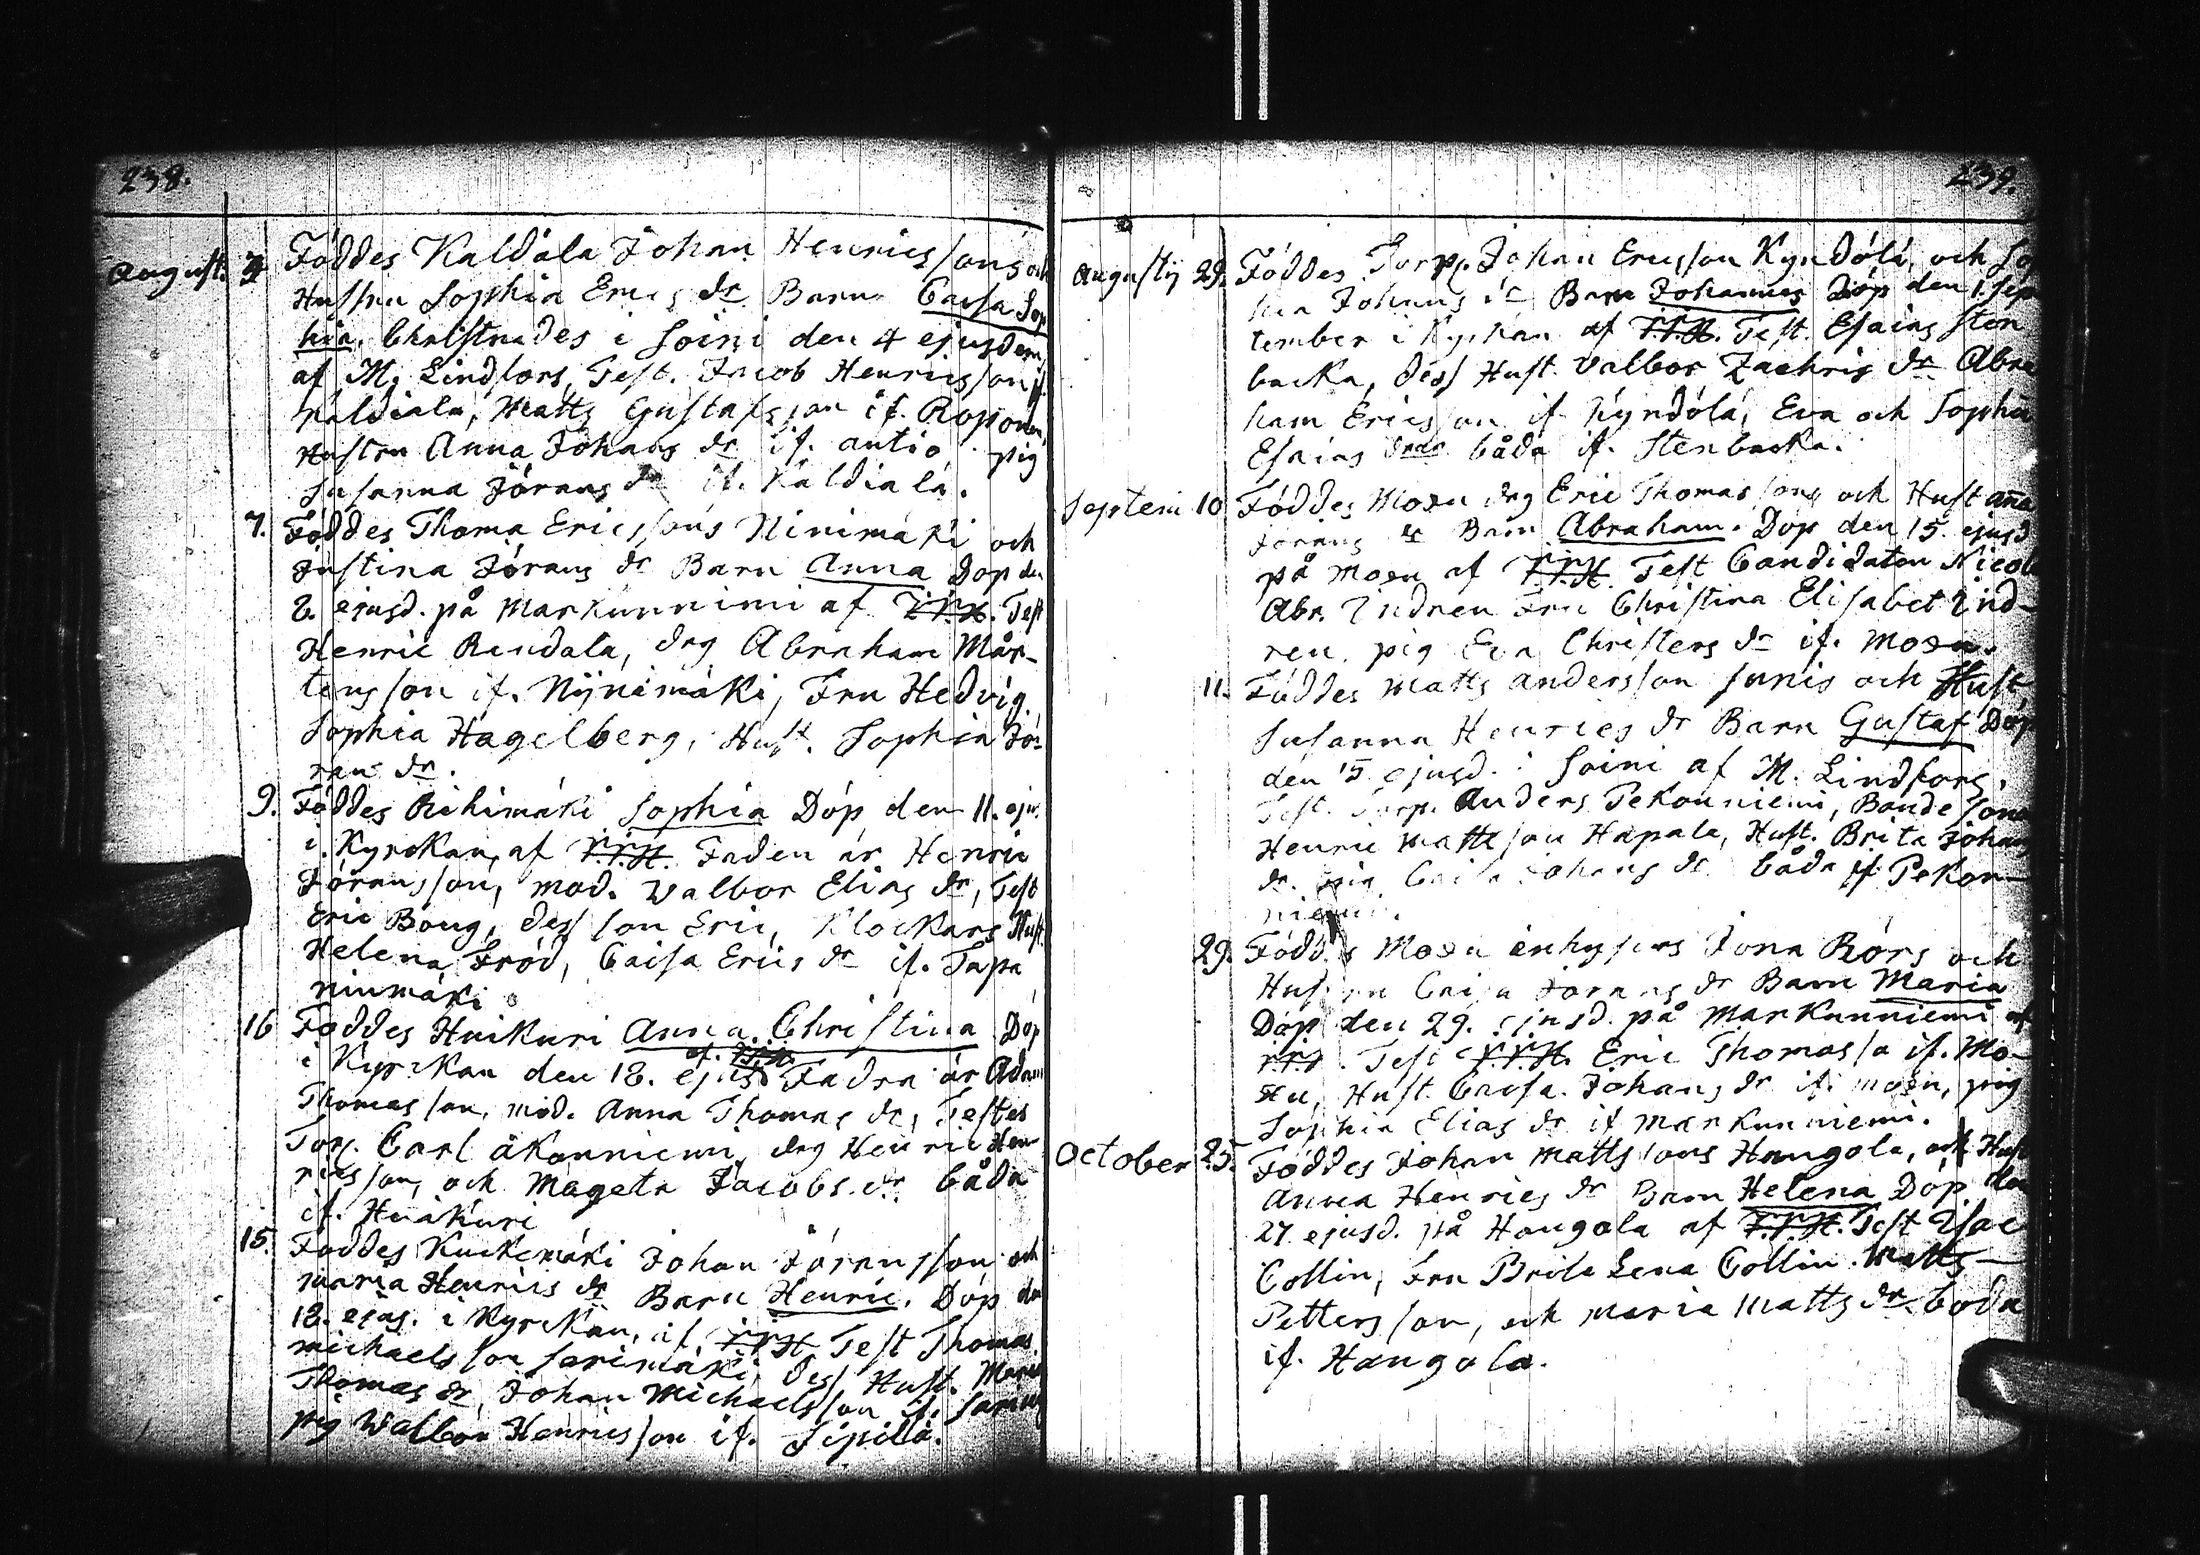 238.
August. 3 Föddes Kaldåla Johan Henricssons och
Hustru Sophia Erics dr Barn Caisa Sop
hia. Christnades i Soini den 4 ejusdem
af M. Lindfors, Test. Jacob Henricsson if.
Kaldiala, Matts Gustafsson if. Roponen,
Hustru Anna Johans dr if. antio pig
Susanna Jörans dr if. Kaldiala.
7. Föddes Thoma Ericssons Ninimäki och
Justina Jörans dr Barn Anna Döp den
8. ejusd. på Markunnimi af Test
Henric Rindala, drg Abraham Mår-
tensson if. Nÿnimäki, Fru Hedvig
Sophia Hagelberg, Hust. Sophia Jö-
rans dr.
9. Föddes Rihimäki Sophia Döp den 11. ejus.
i Kyrckan, af Faden är Henric
Jöransson, mod. Walbor Elias dr, Test
Eric Boug, dess son Eric, Klockars Hust.
Helena Fröd, Caisa Erics dr if. Tapa
ninmäki
16 Föddes Huikuri Anna Christina Döp
i Kyrckan den 18. ejusd. af Fadren är Adam
Thomasson, mod. Anna Thomas dr, Testes
Torp. Carl åkonniemi, drg Henric Hen-
ricsson, och Mageta Jacobs dr båda
if. Huikuri
15. Föddes Kuckemäki Johan Jöransson och
maria Henrics dr Barn Henric. Döp den
18. ejus. i Kyrckan, af Test Thomas
michaelsson Sarimäki, dess Hust. Maria
Thomas dr, Johan Michaelsson if.
pig Walbor Henricsson if. Sipilä.
239.
Augustÿ 29. Föddes Torp. Johan Ericsson Kyndölä, och Sop
hia Johans dr Barn Johannes Döp den 1. Sep
tember i Kyrkan af Test. Esaias Sten
backa, dess Hust. Valbor Zachris dr Abra
ham Ericsson if. Kyndölä, Eva och Sophia
Esaias drar båda if. Stenbacka.
Septem 10 Föddes Moen drg Eric Thomassons och Hust aña
Jörans dr Barn Abraham. Döp den 15. ejusd
på moen af Test Candidaten Nicol
Abr. Indren Fru Christina Elisabet Ind-
ren. pig Eva Christers dr if. Moen.
11. Föddes Matts Andersson Sunis och Hust
Susanna Henrics dr Barn Gustaf Döp
den 15 ejusd. i Soini af M. Lindfors,
Test. Torp. Anders Pekonniemi, Bonde son
Henric Mattsson Hapala, Hust. Brita Johans
dr. pig Caisa Johans dr båda if Pekon-
niemi.
29. Föddes Moen inhyses Jona Rörs och
Hustru Caisa Jörans dr Barn Maria
Döp den 29. ejusd. på Markunniemi af
Test Eric Thomasson if. Mo-
en, Hust. Caisa Johans dr if. moen, pig
Sophia Elias dr if markunniemi.
October 25. Föddes Johan Mattssons Hangola, och Hust
Anna Henrics dr Barn Helena Döp den
27 ejusd. på Hangola af Test Isac
Collin, Fru Brita Lena Collin. Matts
Pettersson, och Maria Matts dr. båda
if. Hangola.